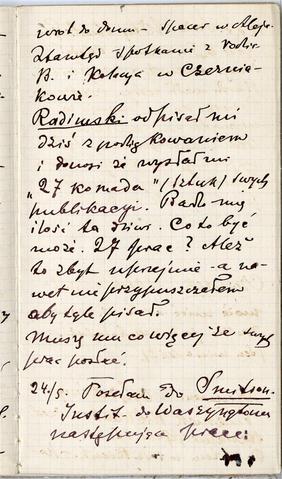 wrot do domu – spacer w Aleje
Stamtąd spotkanie z
B. i kolacja w Czernia-
kowie.
Radimski odpisał mi
dziś z podziękowaniem
i donosi że wysłał mi
„27 komada" (sztuk) swych
publikacyi. Bardo mię
ilość ta dziwi. Co to być
może. 27 prac? Ależ
to zbyt uprzejmie - a na-
wet nie przypuszczałem
aby tyle pisał.
Muszę mu co więcej ze swych
prac posłać.
24/5. Posłałem do Smitson.
Instit. do Waszyngtonu
następujące prace: